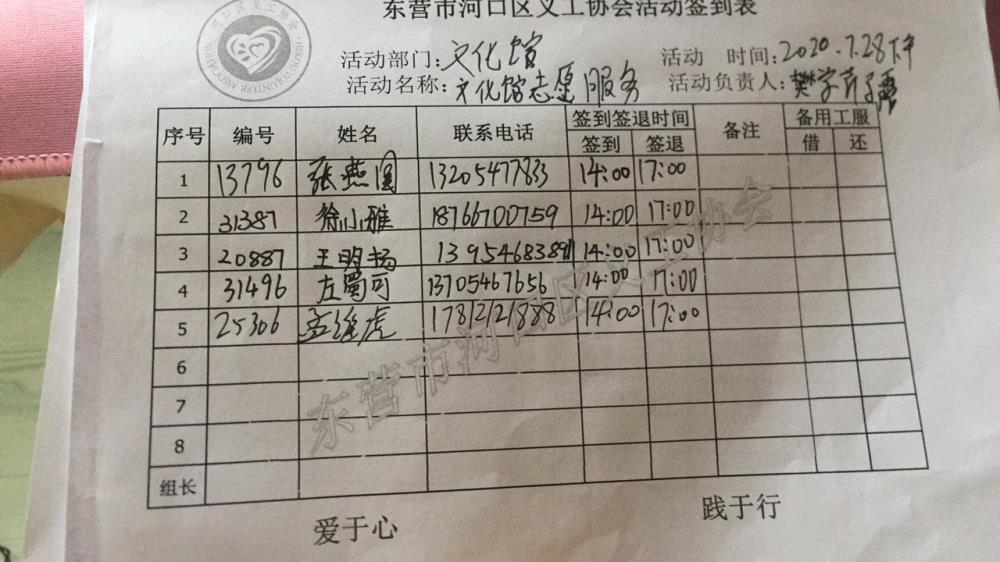 东营市河口区义工协会活动签到表
活动部门:文化馆 活动 时间:2020.7.28下午
活动名称:文化馆志愿服务 活动负责人:樊学
序号 编号 姓名 联系电话 签到签退时间 备注 备用工服
签到 签退 借 还
1 13796 张燕 13205477833 14:00 17:00
2 31387 徐小雅 18766700759 14:00 17:00
3 20887 王明扬 1395468389 14:00 17:00
4 31496 左蜀可 13705467656 14:00 17:00
5 25306 孟维虎 17812121888 14:00 17:00
6
7
8
组长
爱于心 践于行
东营市河口区义工协会
HEKOU VOLUNTEER ASSOCIATION